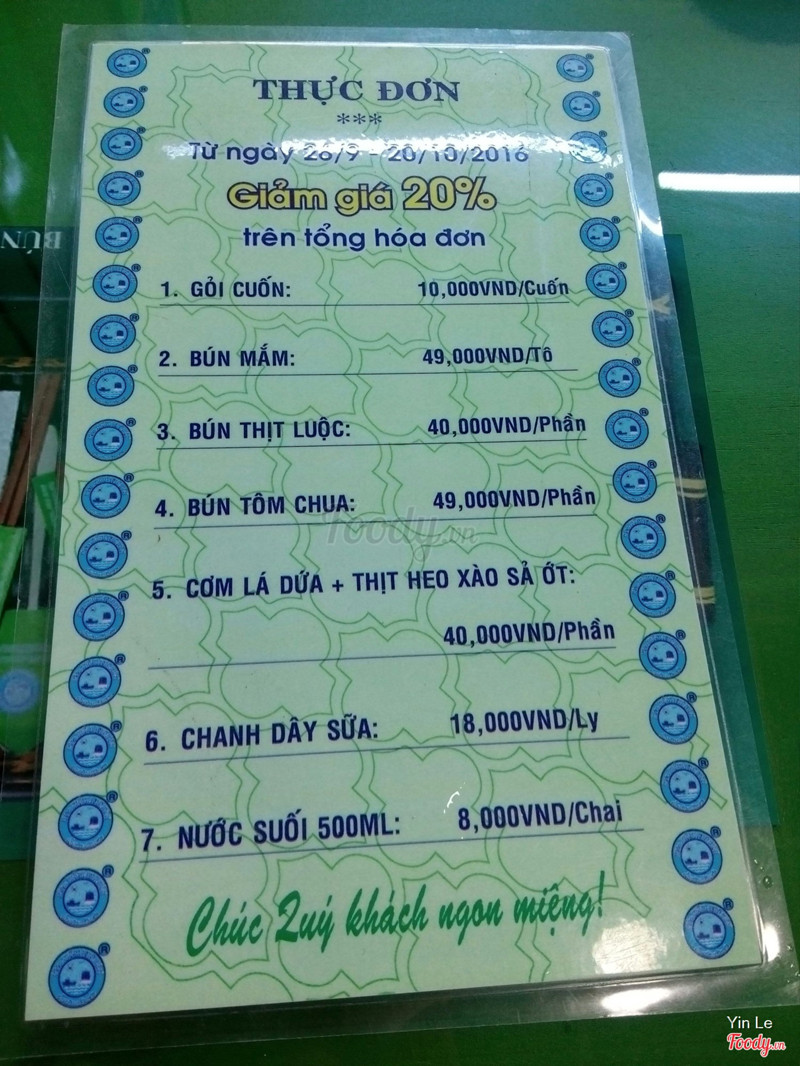 THỰC ĐƠN
***
Từ ngày 26/9 - 20/10/2016
Giảm giá 20%
trên tổng hóa đơn
1. GỎI CUỐN: 10,000VND/Cuốn
2. BÚN MẮM: 49,000VND/Tô
3. BÚN THỊT LUỘC: 40,000VND/Phần
4. BÚN TÔM CHUA: 49,000VND/Phần
5. CƠM LÁ DỨA + THỊT HEO XÀO SẢ ỚT:
40,000VND/Phần
6. CHANH DÂY SỮA: 18,000VND/Ly
7. NƯỚC SUỐI 500ML: 8,000VND/Chai
Chúc Quý khách ngon miệng!
BÚN
Foody.vn
Yin Le
Foody.vn